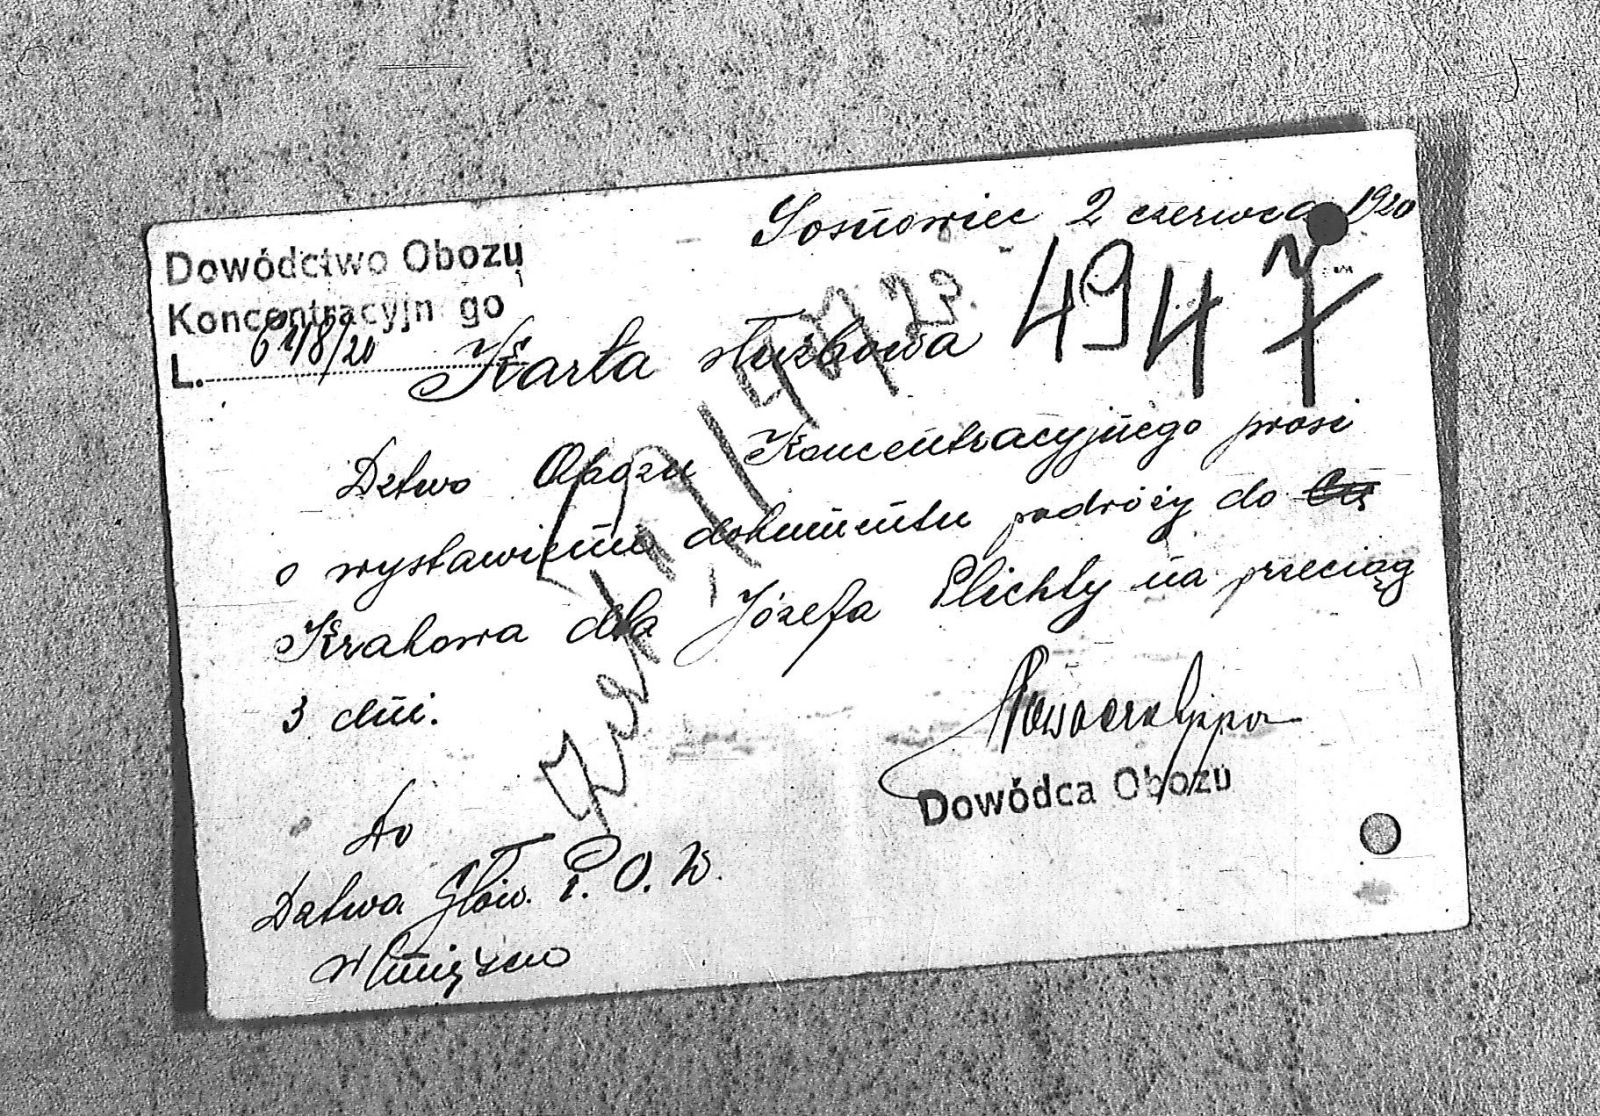 Sosnowiec 2 czerwca 1920
Dowództwo Obozu
Koncentracyjn go
L. 61/8/20
4947
Karta służbowa
Dztwo Obozu Koncentracyjnego prosi
o wystawienie dokumentu podróży do
Krakowa dla Józefa Plichty na przeciąg
3 dni.
Dowódca Obozu
Do
Dztwa Głów. P. O. W.
w